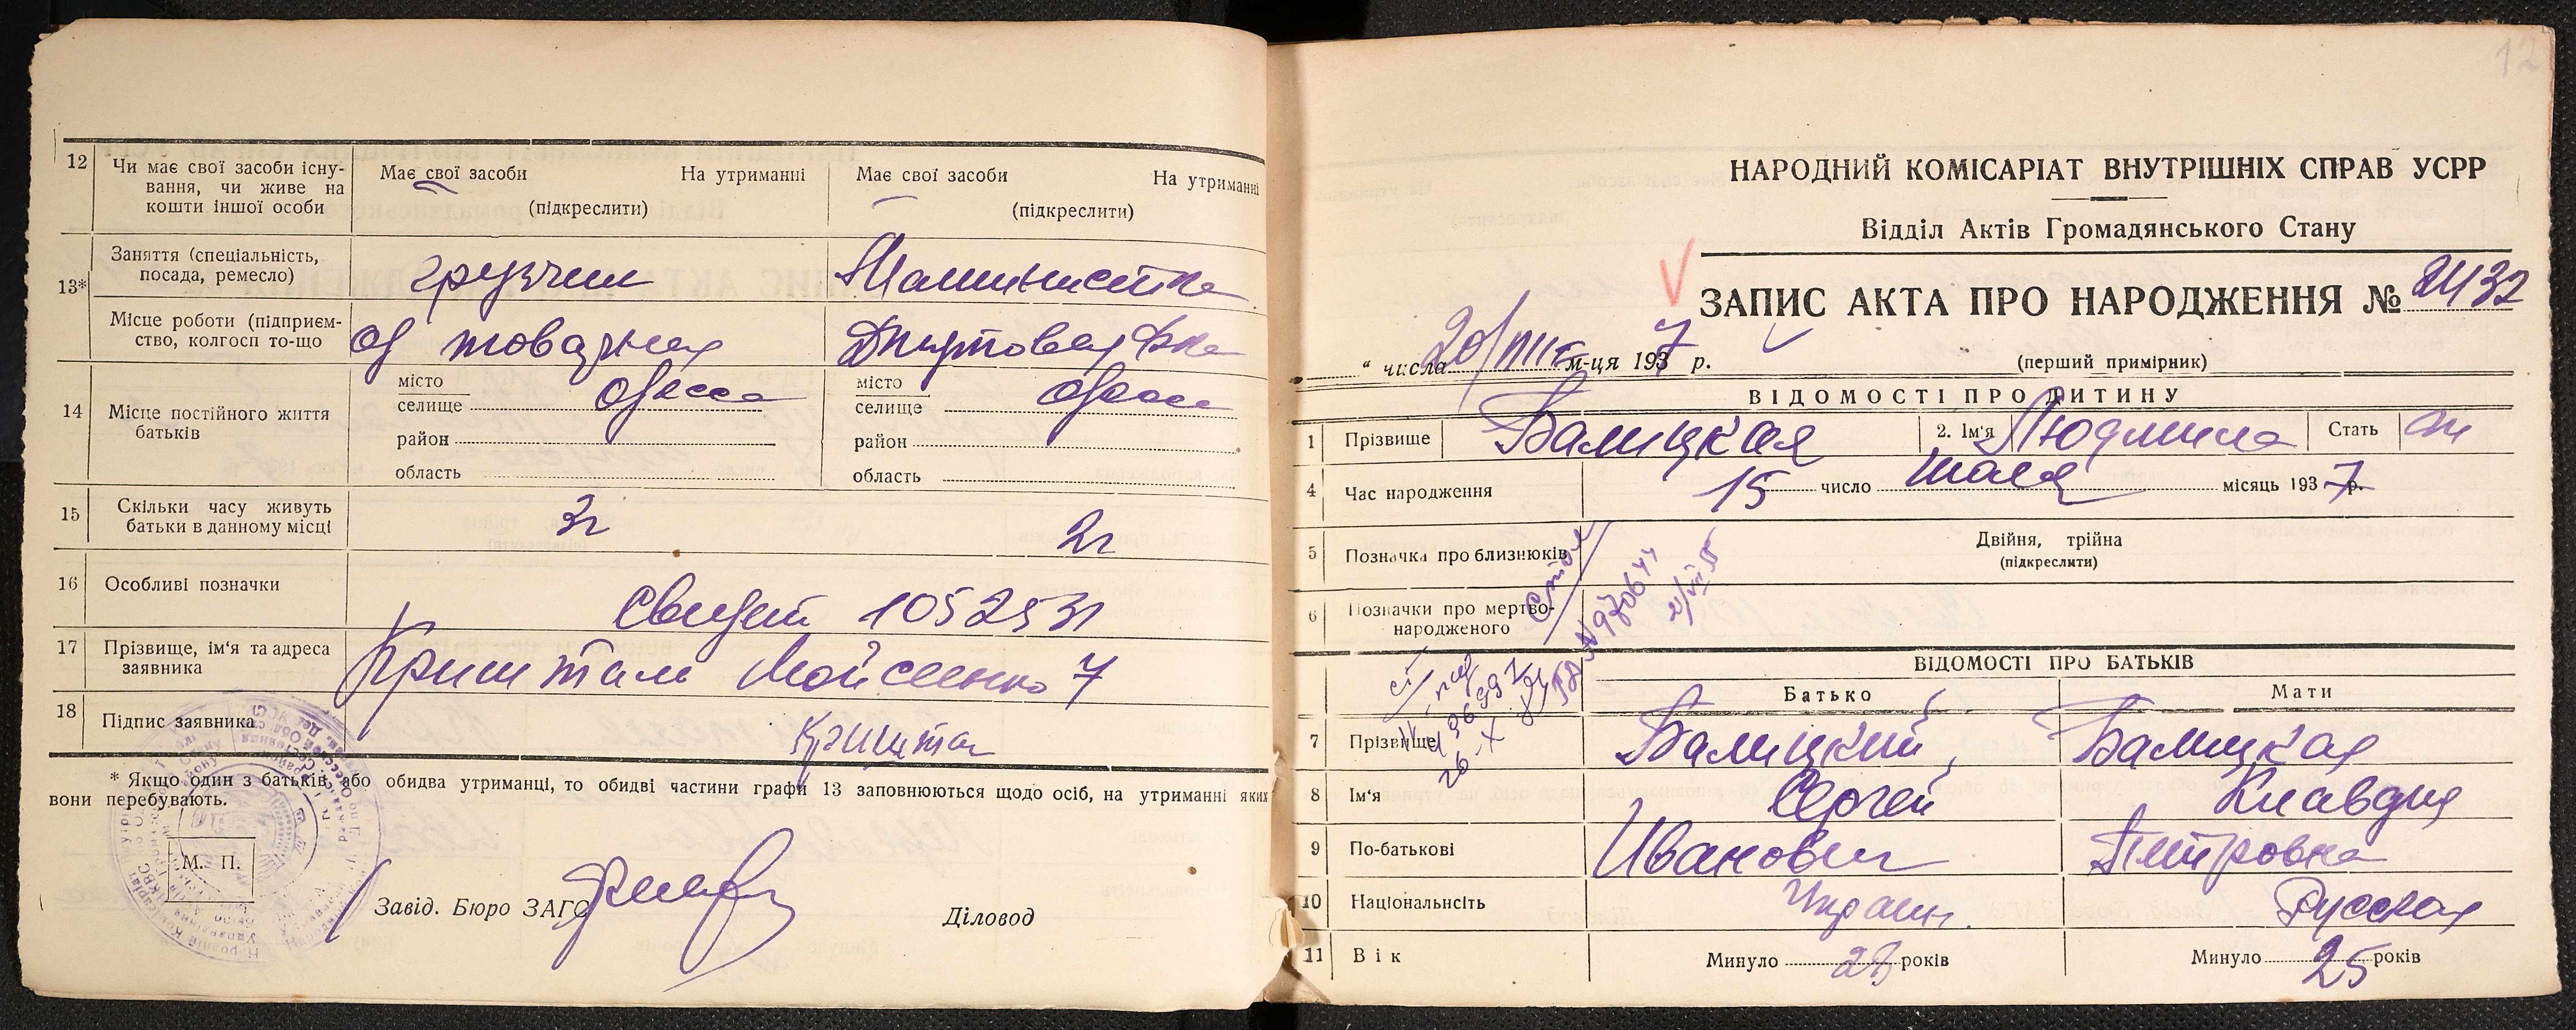 12
Чи має свої засоби існу-
вання, чи живе на
кошти іншої особи
Має свої засоби
На утриманні
(підкреслити)
Має свої засоби
На утриманні
(підкреслити)
13*
Заняття (спеціальність,
посада, ремесло)
грузчик
Машинистка
Місце роботи (підприєм-
ство, колгосп то-що
Од товарная
Джутовая ф-ка
14
Місце постійного життя
батьків
місто
селище
Одесса
район
область
місто
селище
Одесса
район
область
15
Скільки часу живуть
батьки в данному місці
3г
2г
16
Особливі позначки
Свидет 1052531
17
Прізвище, ім'я та адреса
заявника
7
18
Підпис заявника
* Якщо один з батьків, або обидва утриманці, то обидві частини графи 13 заповнюються щодо осіб, на утриманні яких
вони перебувають.
М. П.
Завід. Бюро ЗАГС
Діловод
12
НАРОДНИЙ КОМІСАРІАТ ВНУТРІШНІХ СПРАВ УСРР
Відділ Актів Громадянського Стану
ЗАПИС АКТА ПРО НАРОДЖЕННЯ №
" числа 20/VIII м-ця 1937 р.
(перший примірник)
ВІДОМОСТІ ПРО ДИТИНУ
1
Прізвище
Балицкая
2. Ім'я
Людмила
Стать
ж
4
Час народження
15 число июля місяць 1937 р.
5
Позначка про близнюків
Двійня, трійня
(підкреслити)
6
Позначки про мертво-
народженого
ВІДОМОСТІ ПРО БАТЬКІВ
Батько
Мати
7
Прізвище
Балицкий
Балицкая
8
Ім'я
Сергей
Клавдия
9
По-батькові
Иванович
Дмитровна
10
Національність
Украин.
Русская
11
Вік
Минуло 28 років
Минуло 25 років